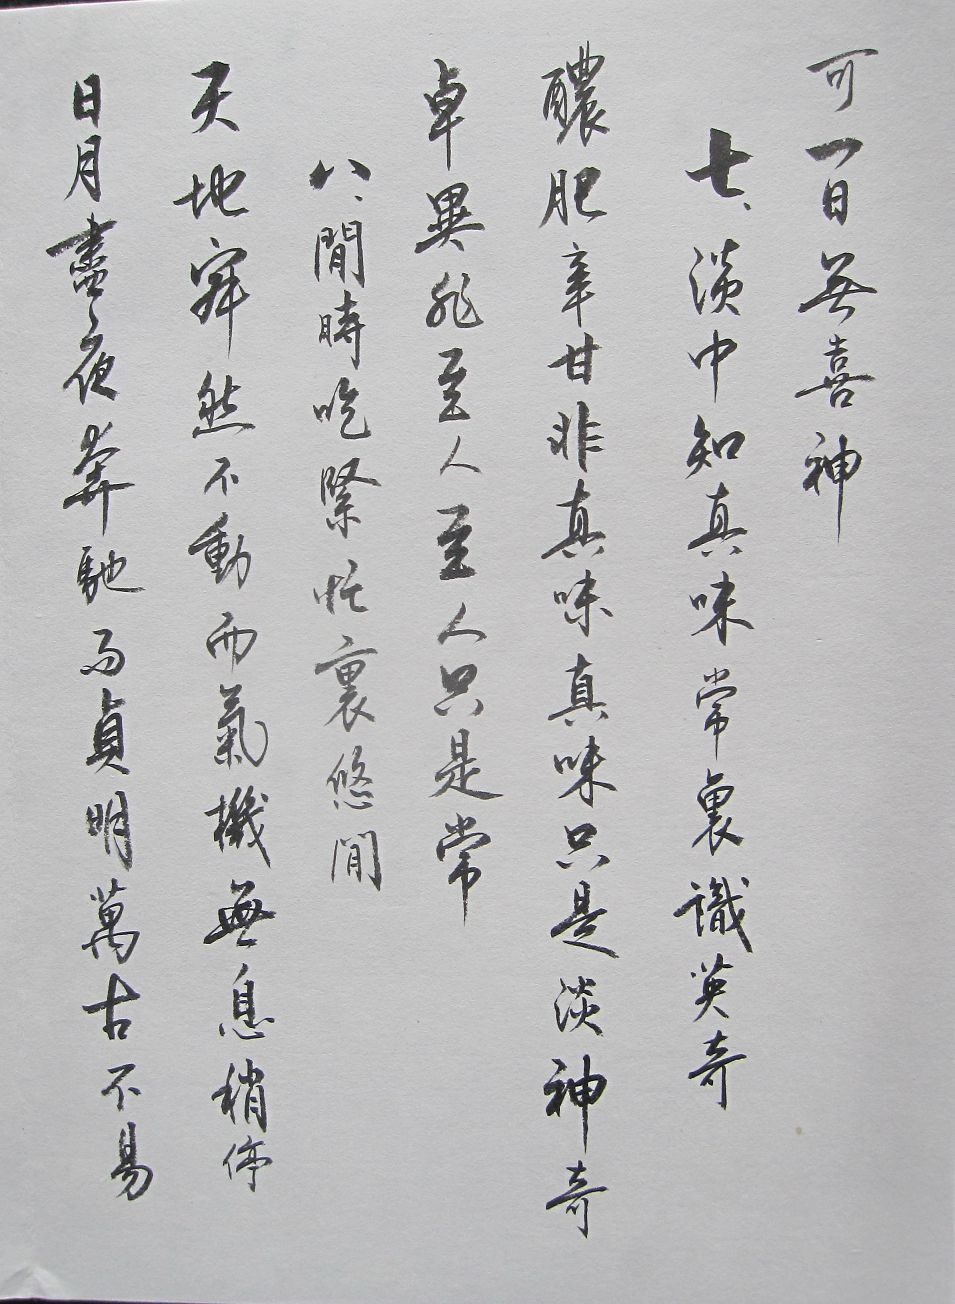 可一日無喜神
七、淡中知真味常裏識英奇
醲肥辛甘非真味真味只是淡神奇
卓異非至人至人只是常
八、閒時吃緊忙裏悠閒
天地寂然不動而氣機無息稍停
日月晝夜奔馳而貞明萬古不易